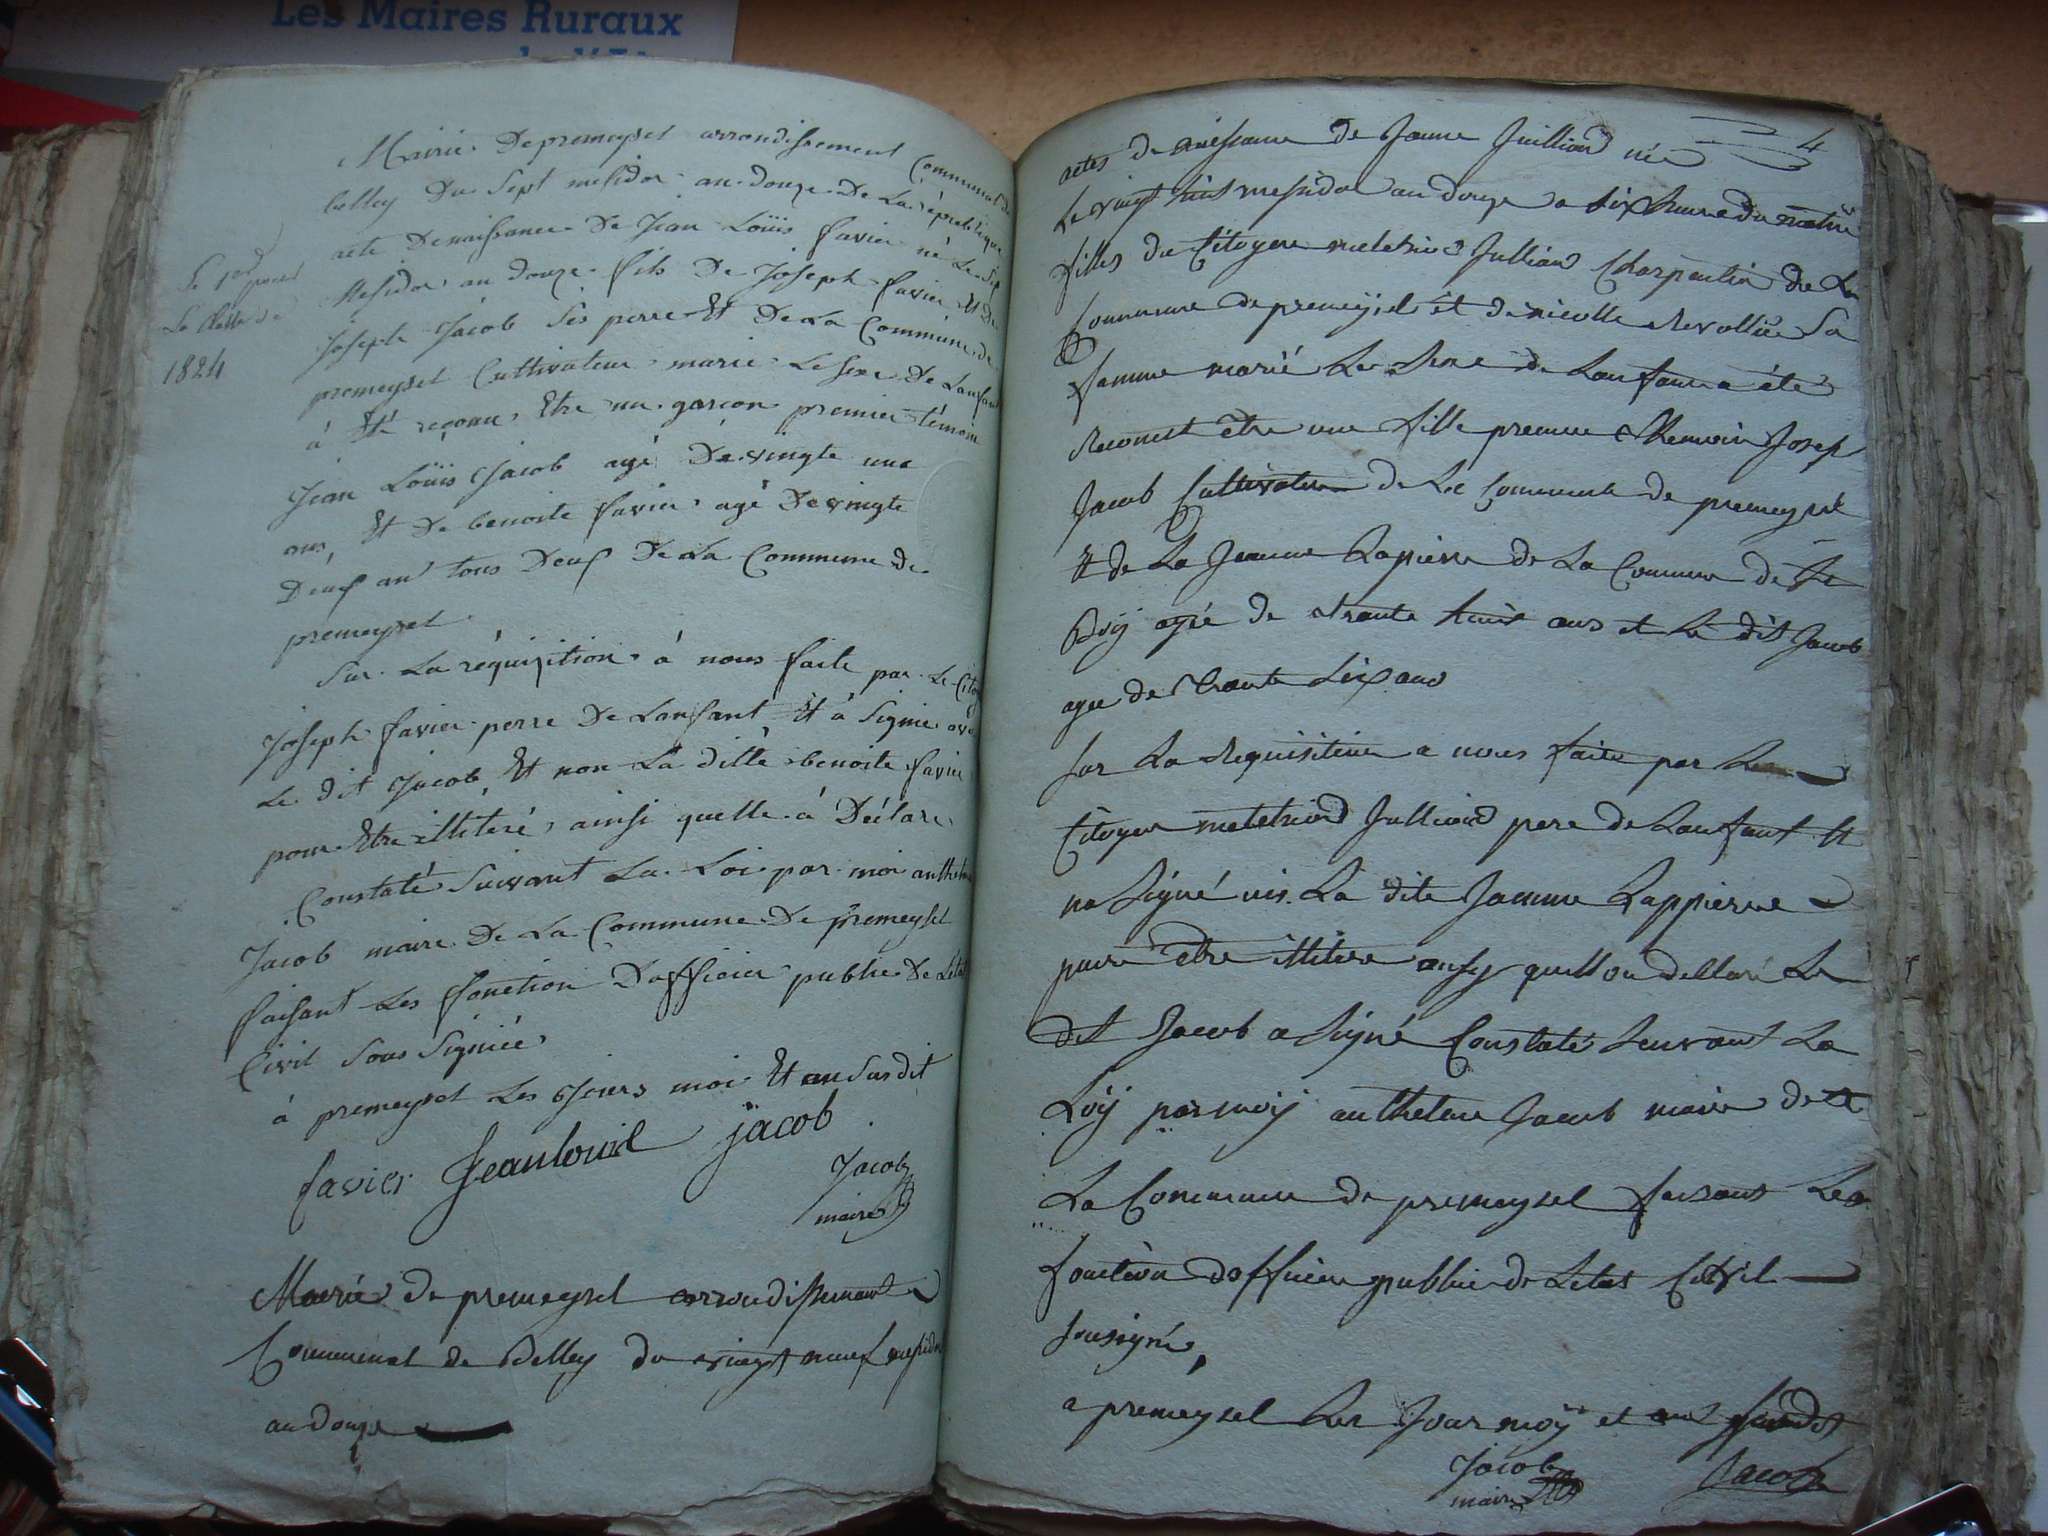 Les Maires Ruraux
Mairie De premeysel arrondissement Communal de
belley Du Sept mesidor an douze De La republique
acte Denaissance De Jean Loüis favier né Le Sep
Mesidor an douze fils De Joseph favier Et De
Joseph Jacob Ses perre Et De La Commune de
premeysel Cultivateur marié Le sexe De Lanfant
à Eté reconu Etre un garcon premier témoin
Jean Loüis Jacob agé De vingte une
ans, Et De benoite favier agé De vingte
Deuf an tous Deuf De La Commune De
premeysel
Sur La réquisition à nous faite par Le Cito
Joseph favier perre De Lanfant Et à Signié avec
Le dit Jacob Et non La ditte benoite favier
pour Etre illiteré ainsi quelle à Déclare
Constaté Suivant La Loi par moi anthelme
Jacob maire De La Commune De premeysel
faisant Les fonction Dofficier public De Letat
Civil Sous Signiée
à premeysel Les Jours moi Et an Susdit
favier Jeanlouis jacob
Jacob
maire
1824
Mairie de premeysel arrondissement
Communal de Belley du vingt neuf mesidor
an douze
4
actes de naissance de Janne Juilliard née
Le vingt huit mesidor an douze a six heure du matin
filles du Citoyen melchior Julliard Charpentier de La
Commune de premeysel et de nicolle Revollier Sa
famme marié Le Sexe de Lanfant a été
Reconut être une fille premier themoin Josep
Jacob Cultivateur de La Commune de premeysel
Et de La Jeanne Lapierre de La Commune de St
Boiy agée de trante huit ans et Le dit Jacob
agee de trante six ans
sur La Requisition a nous faite par Le
Citoyen melchiord Julliard pere de Lanfant Et
na Signé nis La dite Janne Lappierre
pour être illitere ainsy quell on dellaré Le
dit Jacob a signé Constaté Suivant La
Loÿ par moÿ anthelme Jacob maire de
La Commune de premeysel faisant Les
fonction dofficier public de Letat Civil
sousigné,
a premeysel Les Jour moÿ et ans susdit
Jacob Jacob
maire